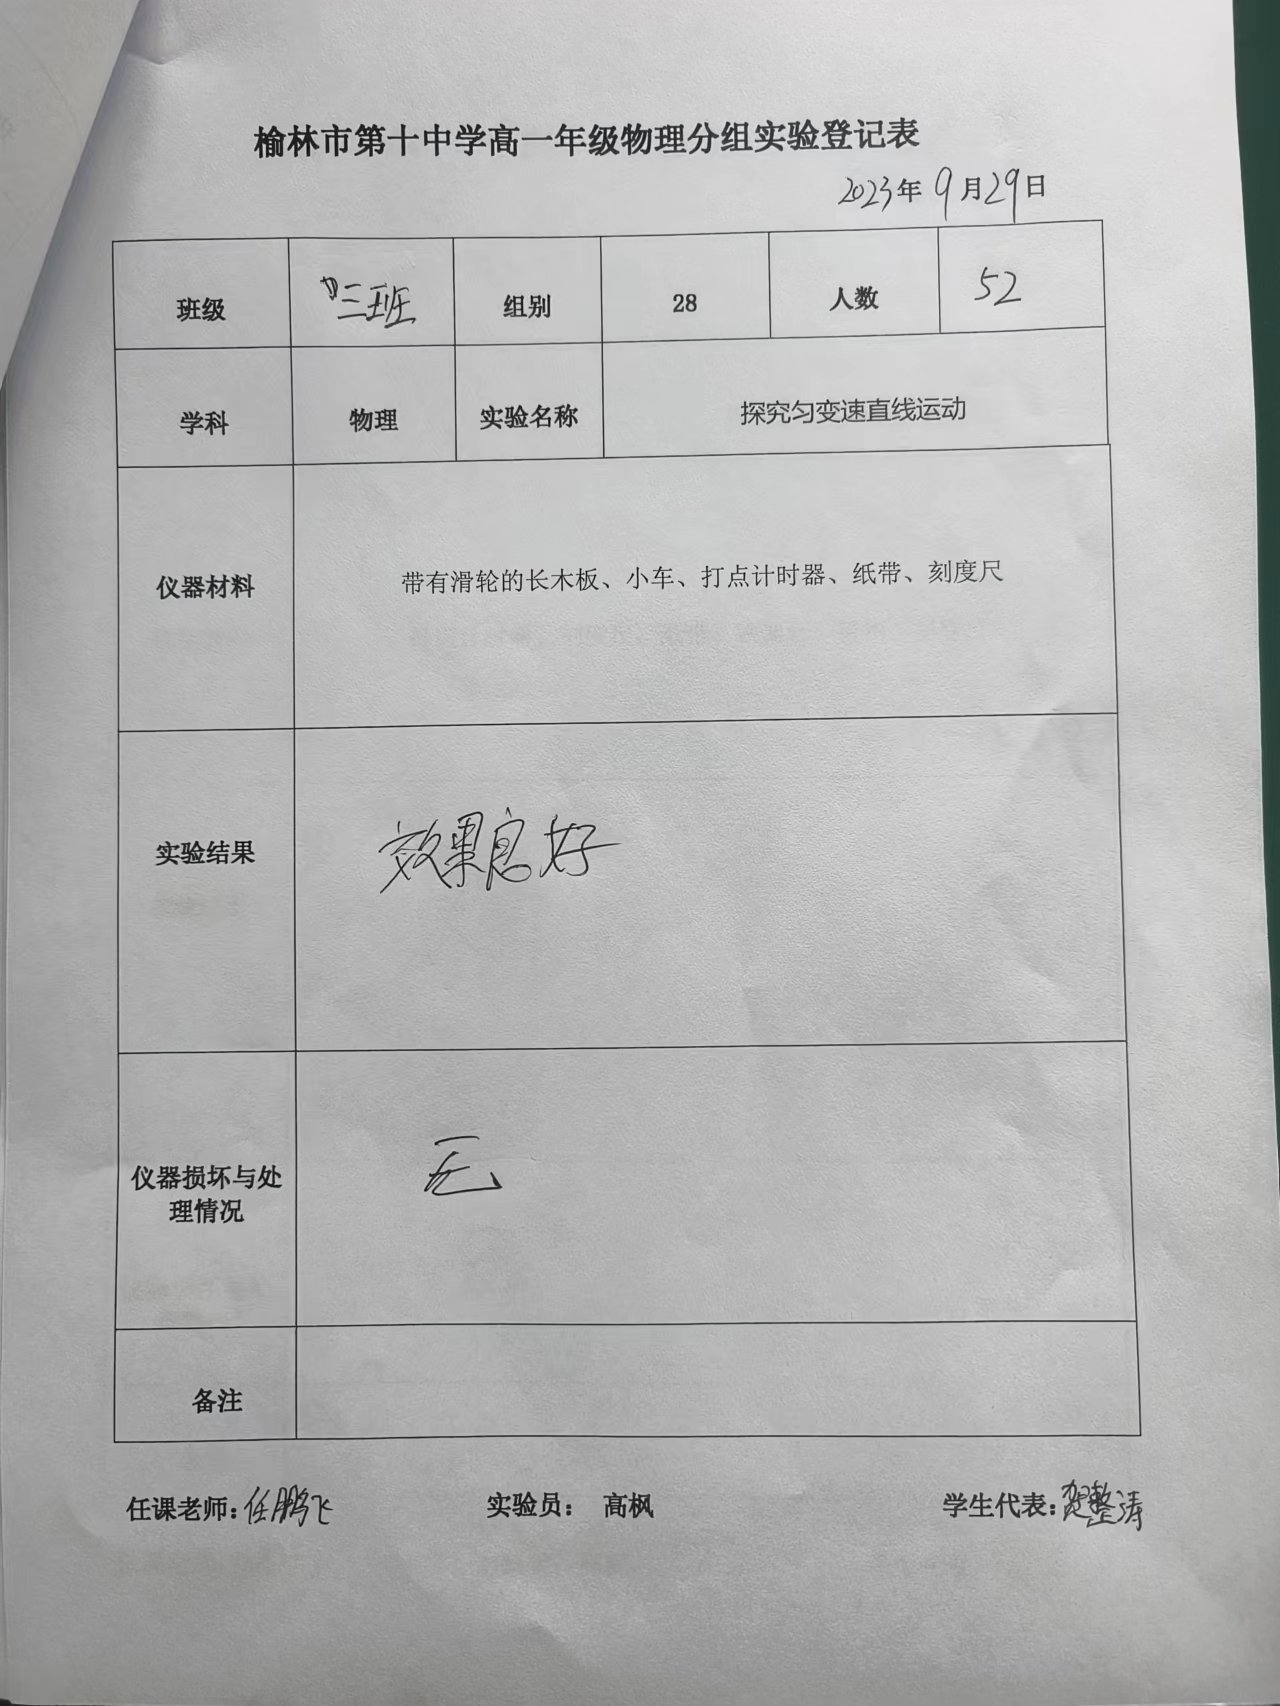 榆林市第十中学高一年级物理分组实验登记表
2023年9月29日
班级 三班 组别 28 人数 52
学科 物理 实验名称 探究匀变速直线运动
仪器材料 带有滑轮的长木板、小车、打点计时器、纸带、刻度尺
实验结果 效果良好
仪器损坏与处
理情况 无
备注
任课老师:任鹏飞 实验员: 高枫 学生代表:贺整涛